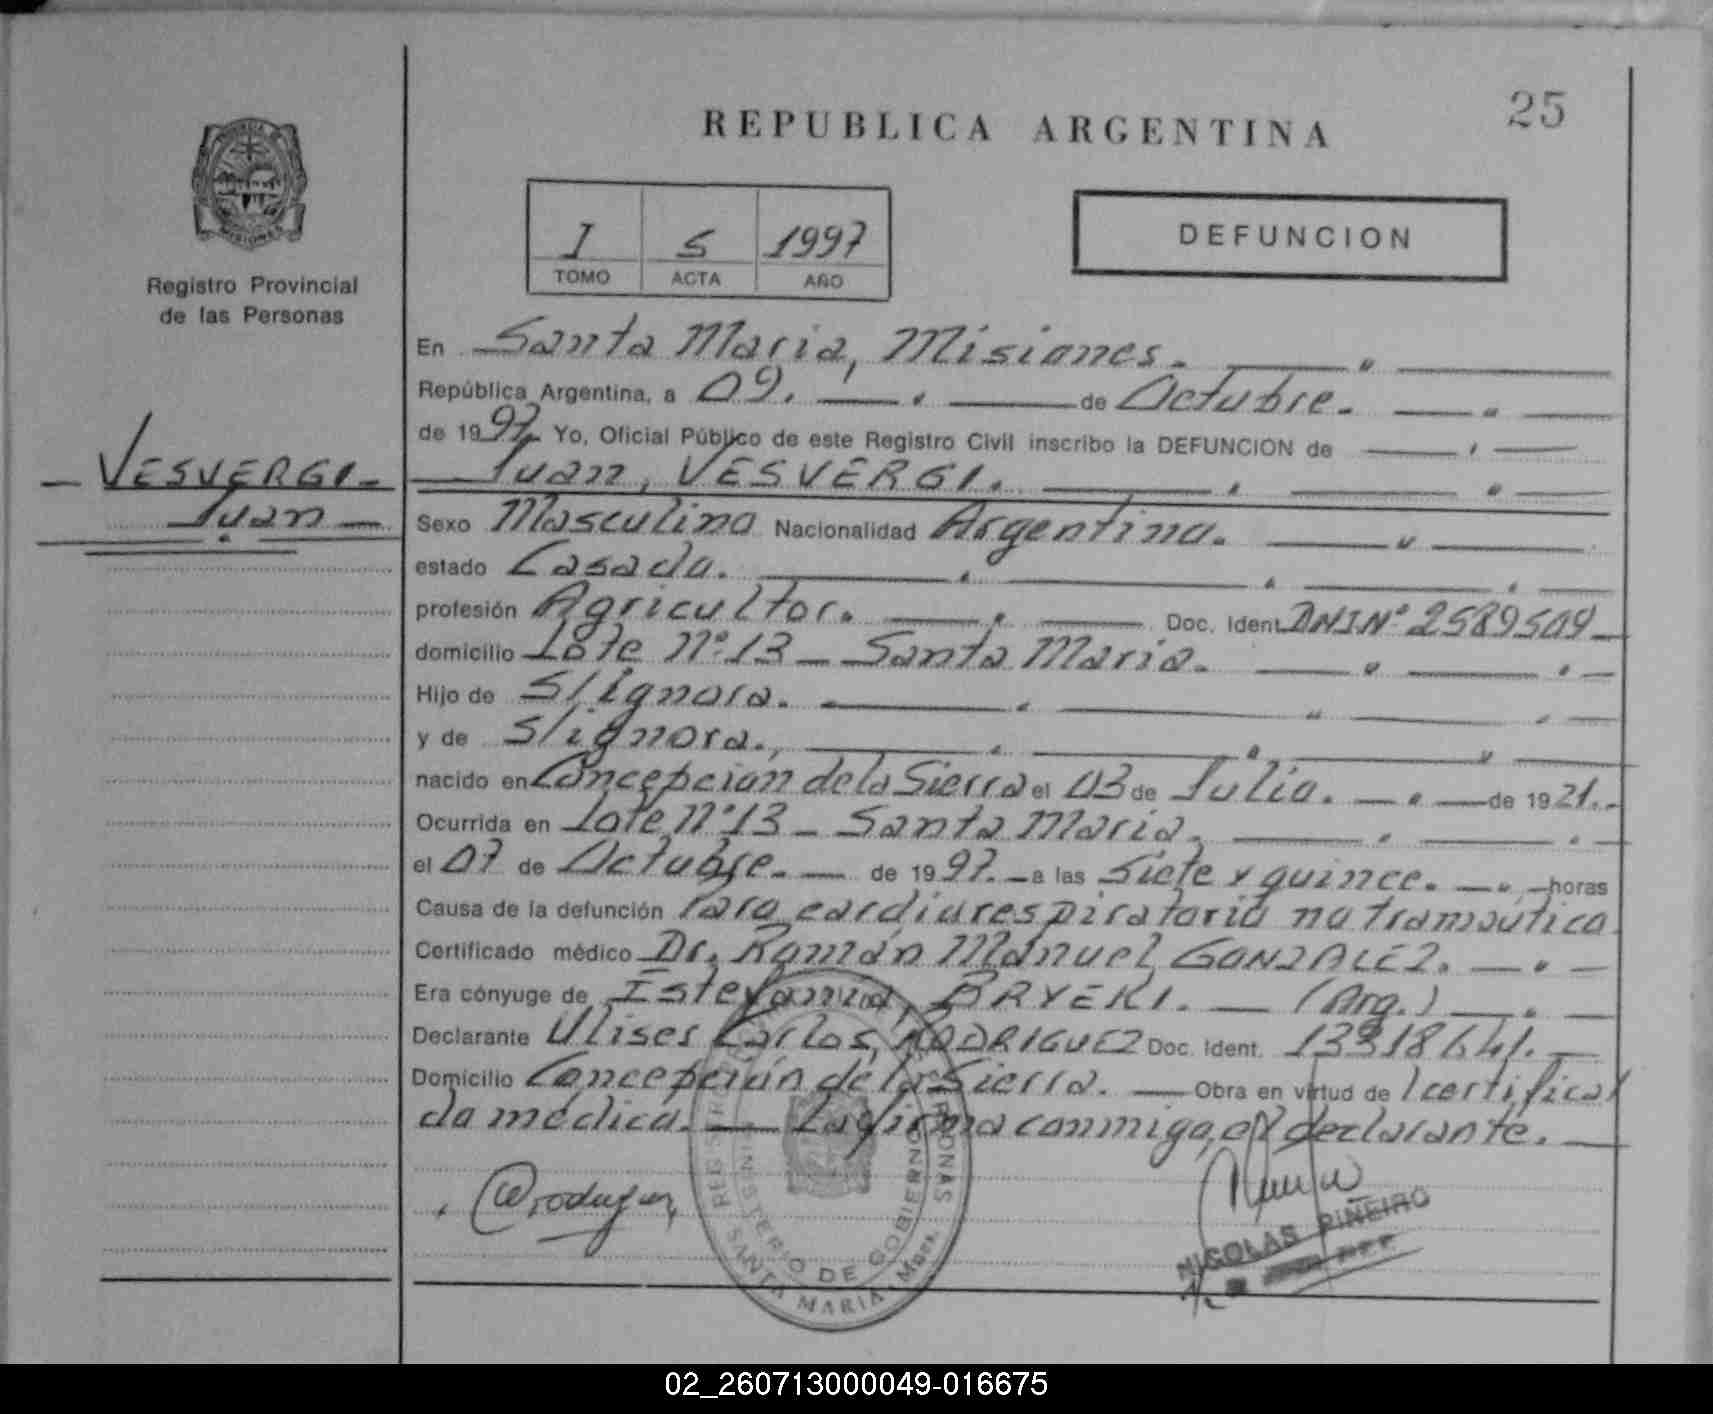 25
REPUBLICA ARGENTINA
I S 1997
TOMO ACTA AÑO
DEFUNCION
Registro Provincial
de las Personas
VESVERGI
Juan
En Santa Maria, Misiones.
República Argentina, a 09. de Octubre.
de 1997 Yo, Oficial Público de este Registro Civil inscribo la DEFUNCION de
Juan, VESVERGI.
Sexo Masculino Nacionalidad Argentina.
estado Casado.
profesión Agricultor. Doc. Ident. DNI Nº 2589509
domicilio Lote Nº 13 - Santa Maria.
Hijo de S/ignora.
y de S/ignora.
nacido en Concepcion de la Sierra el 03 de Julio. de 1921.
Ocurrida en Lote Nº 13 - Santa Maria.
el 07 de Octubre. de 1997. a las Siete y quince. horas
Causa de la defunción Paro cardiorespiratorio no tramautico
Certificado médico Dr. Ramón Manuel GONZALEZ.
Era cónyuge de (Arg.)
Declarante Ulises Carlos, RODRIGUEZ Doc. Ident. 13318641.
Domicilio Concepción de la Sierra. Obra en virtud de /certifica/
do médico. La firma conmigo, el declarante.
NICOLAS PIÑEIRO
MINISTERIO DE GOBIERNO
SANTA MARIA Mnes.
02_260713000049-016675